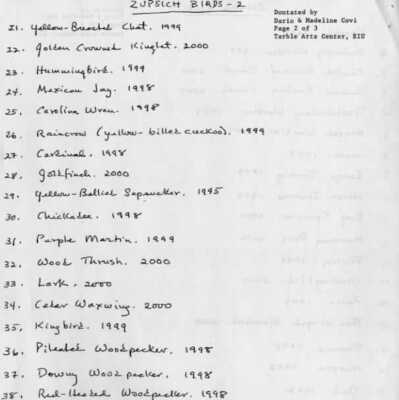 ZUPSICH BIRDS - 2
Dontated by
Dario & Madeline Covi
Page 2 of 3
Tarble Arts Center, EIU
21. Yellow-Breasted Chat. 1999
22. Golden Crowned Kinglet. 2000
23. Hummingbird. 1999
24. Mexican Jay. 1998
25. Carolina Wren. 1998
26. Raincrow (yellow-billed cuckoo). 1999
27. Cardinal. 1998
28. Goldfinch. 2000
29. Yellow-Bellied Sapsucker. 1995
30. Chickadee. 1998
31. Purple Martin. 1999
32. Wood Thrush. 2000
33. Lark. 2000
34. Cedar Waxwing. 2000
35. Kingbird. 1999
36. Pileated Woodpecker. 1998
37. Downy Woodpecker. 1998
38. Red-Headed Woodpecker. 1998